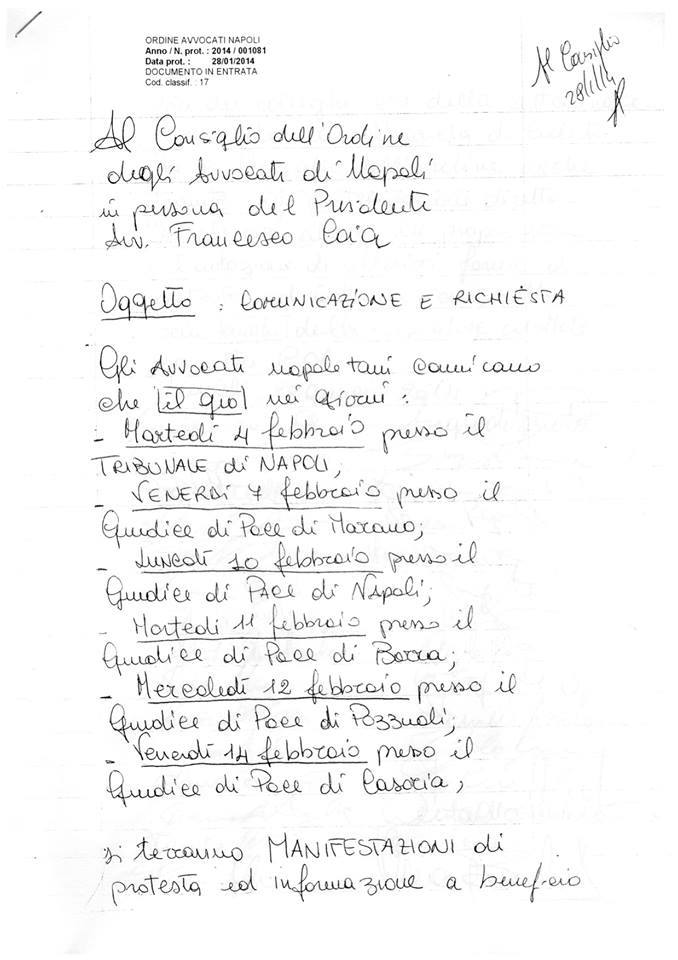 ORDINE AVVOCATI NAPOLI
Anno / N. prot. : 2014 / 001081
Data prot. : 28/01/2014
DOCUMENTO IN ENTRATA
Cod. classif. : 17
Al Consiglio
28/1/14
Al Consiglio dell'Ordine
degli Avvocati di Napoli
in persona del Presidente
Avv. Francesco Caia
Oggetto : COMUNICAZIONE E RICHIESTA
Gli Avvocati napoletani
che nei giorni :
- Martedì 4 febbraio presso il
TRIBUNALE di NAPOLI,
- VENERDì 7 febbraio presso il
Giudice di Pace di Marano;
- Lunedì 10 febbraio presso il
Giudice di PAce di NApoli;
- Martedì 11 febbraio presso il
Giudice di Pace di Barra;
- Mercoledì 12 febbraio presso il
Giudice di Pace di Pozzuoli;
- Venerdì 14 febbraio presso il
Giudice di Pace di Casoria,
si terranno MANIFESTAZIONI di
protesta ed informazione a beneficio